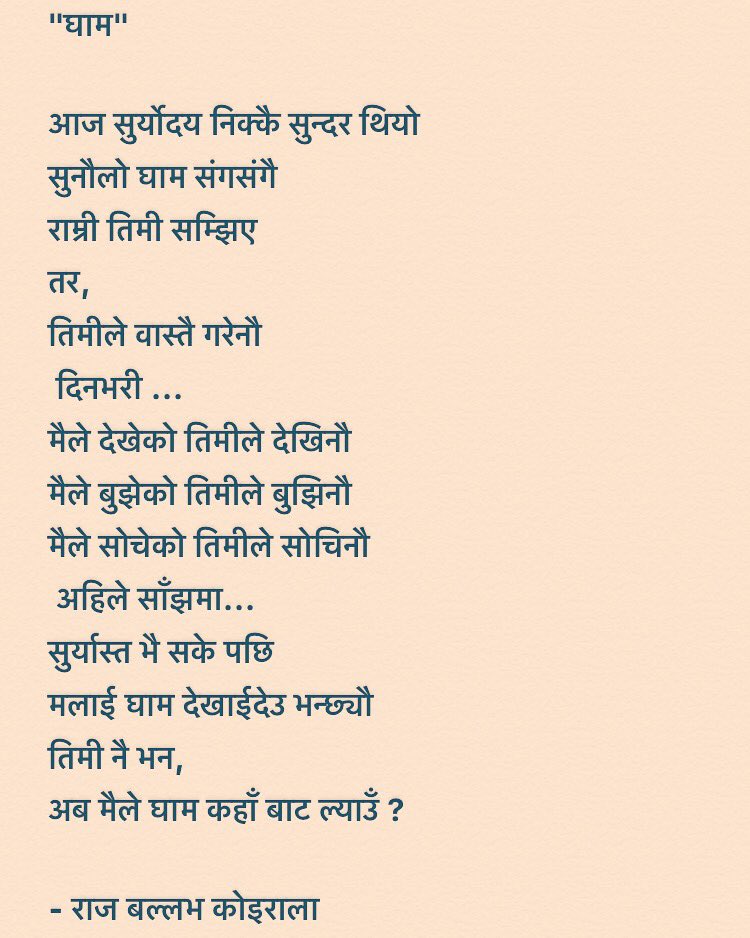 "घाम"
आज सुर्योदय निक्कै सुन्दर थियो
सुनौलो घाम संगसंगै
राम्री तिमी सम्झिए
तर,
तिमीले वास्तै गरेनौ
दिनभरी ...
मैले देखेको तिमीले देखिनौ
मैले बुझेको तिमीले बुझिनौ
मैले सोचेको तिमीले सोचिनौ
अहिले साँझमा...
सुर्यास्त भै सके पछि
मलाई घाम देखाईदेउ भन्छ्यौ
तिमी नै भन,
अब मैले घाम कहाँ बाट ल्याउँ ?
- राज बल्लभ कोइराला